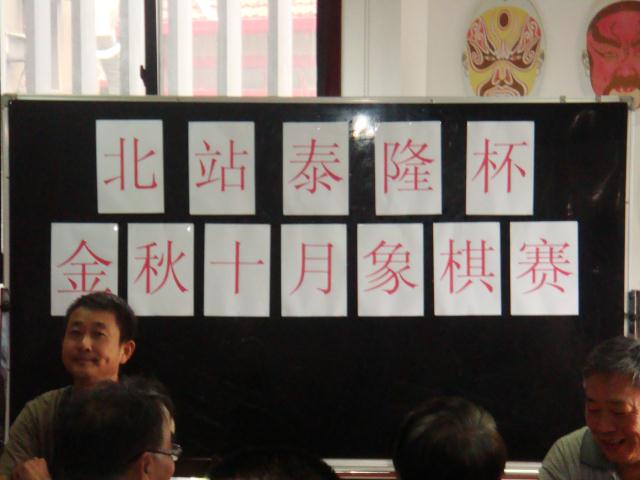 北站泰隆杯
金秋十月象棋赛